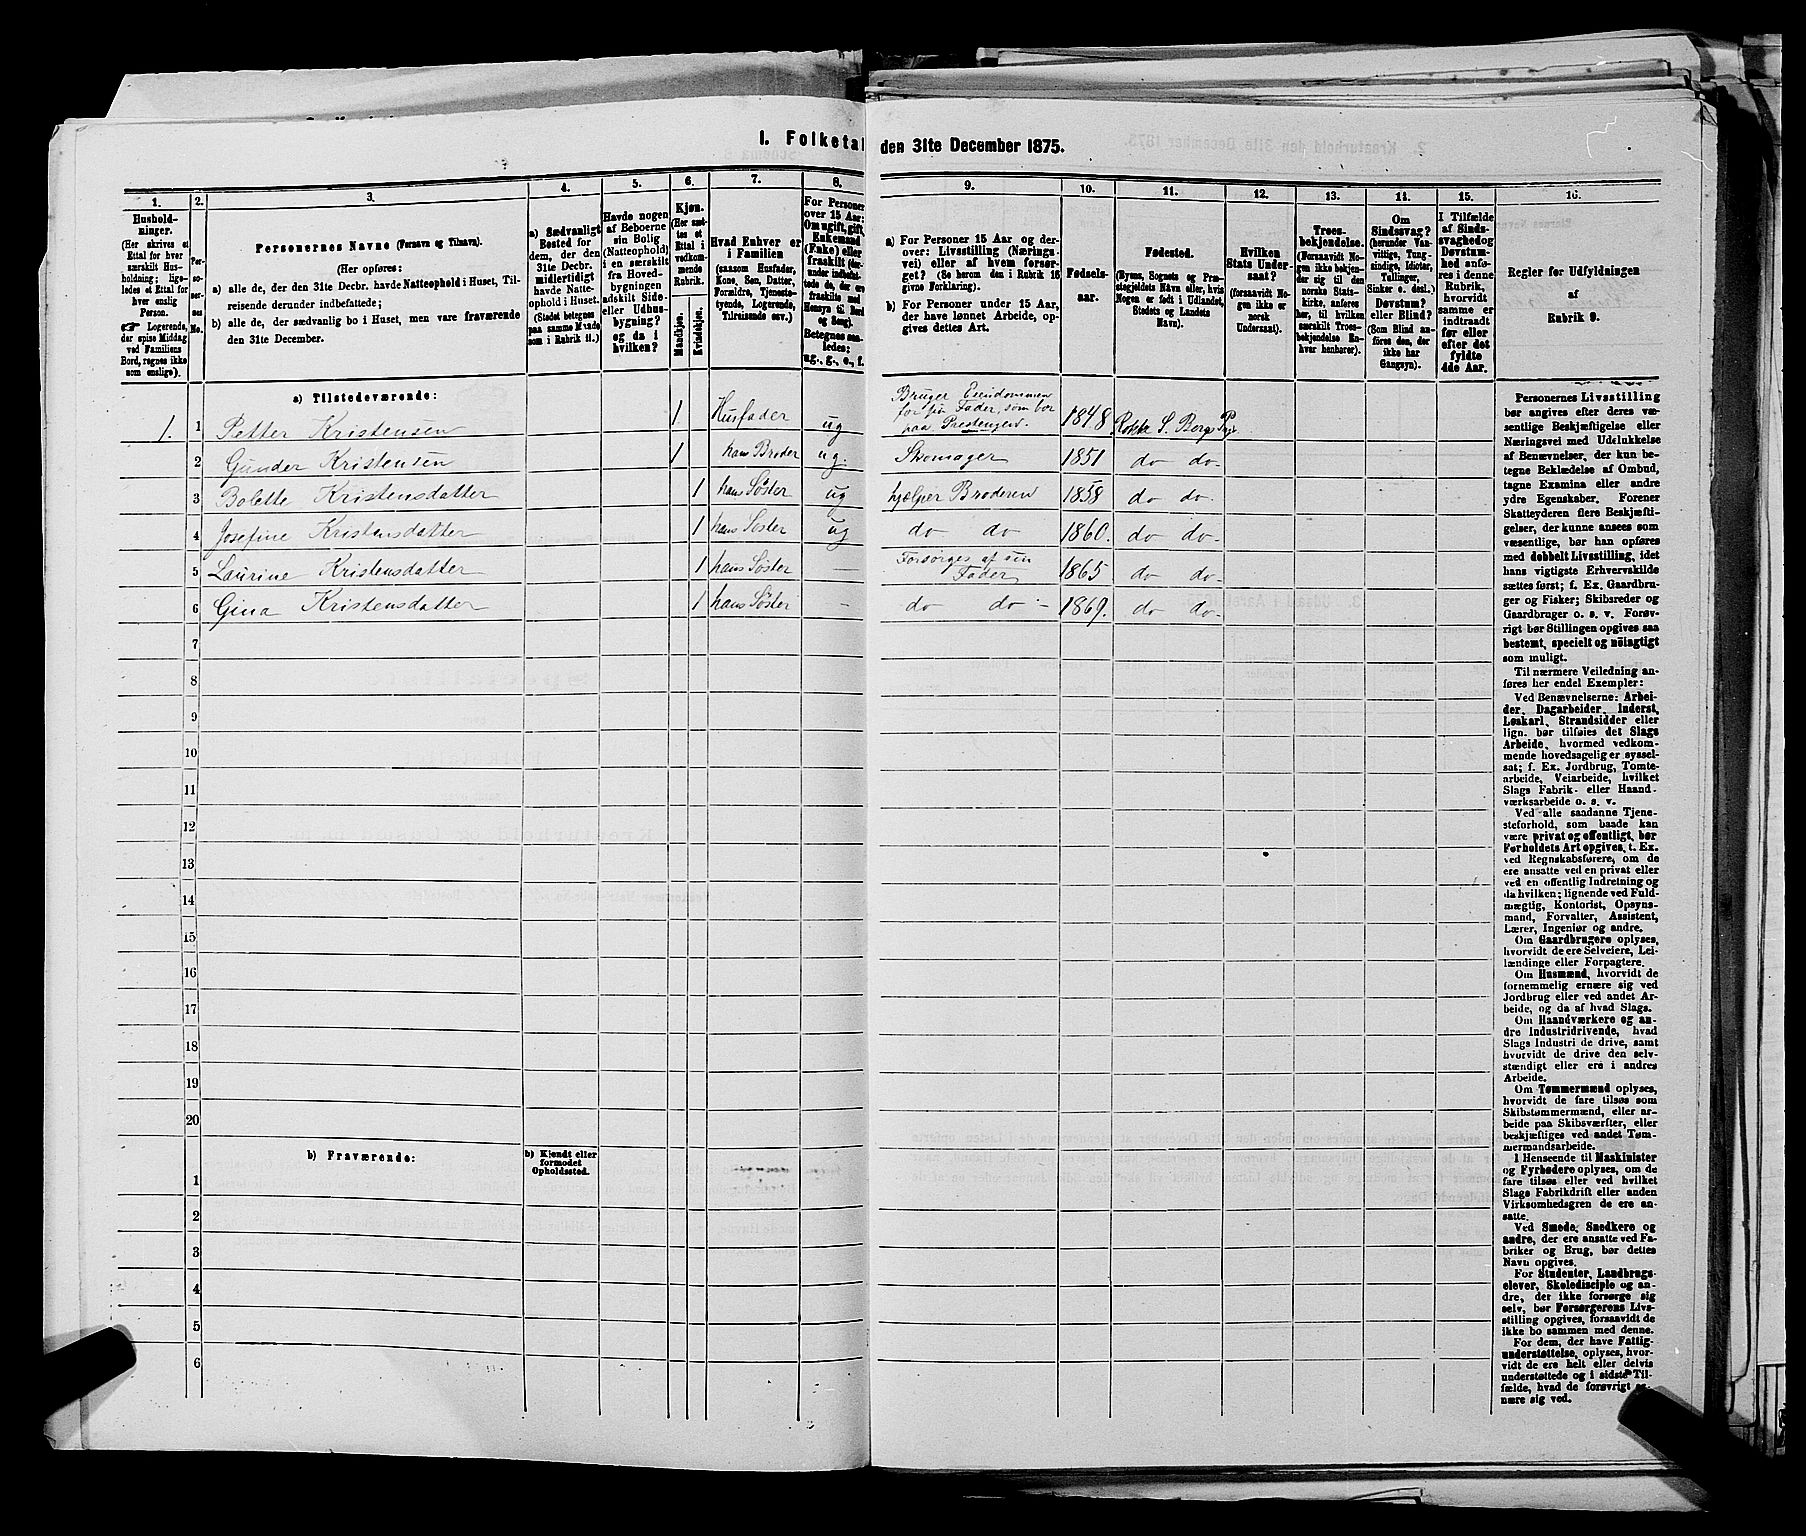 I. Folketal
den 31te December 1875.
1.
2.
3.
4.
5.
6.
7.
8.
9.
10.
11.
12.
13.
14.
15.
16.
Hushold-
ninger.
(Her skrives et
Ettal for hver
særskilt Hus-
holdning; lige-
ledes et Ettal for
hver enslig
Person.
☞ Logerende,
der spise Middag
ved Familiens
Bord, regnes ikke
som enslige).
Per-
so-
ner-
nes
No.
Personernes Navne (Fornavn og Tilnavn).
(Her opføres:
a) alle de, der den 31te Decbr. havde Natteophold i Huset, Til-
reisende derunder indbefattede;
b) alle de, der sædvanlig bo i Huset, men vare fraværende
den 31te December.
a) Sædvanligt
Bosted for
dem, der den
31te Decbr.
midlertidigt
havde Natte-
ophold i Huset.
(Stedet betegnes
paa samme Maade
som i Rubrik 11.)
Havde nogen
af Beboerne
sin Bolig
(Natteophold)
i en særskilt
fra Hoved-
bygningen
adskilt Side-
eller Udhus-
bygning?
og da i
hvilken?
Kjøn.
(Her sæt-
tes et
Ettal i
vedkom-
mende
Rubrik.
Mandkjøn.
Kvindekjøn.
Hvad Enhver er
i Familien
(saasom Husfader,
Kone, Søn, Datter,
Forældre, Tjeneste-
tyende, Logerende,
Tilreisende osv.)
For Personer
over 15 Aar:
Om ugift, gift,
Enkemand
(Enke) eller
fraskilt
Betegnes saa-
ledes:
ug., g., e., f.
a) For Personer 15 Aar og der-
over: Livsstilling (Nærings-
vei) eller af hvem forsør-
get? (Se herom den i Rubrik 16
givne Forklaring).
b) For Personer under 15 Aar,
der have lønnet Arbeide, op-
gives dettes Art.
Fødsels-
aar.
Fødested.
(Byens, Sognets og Præ-
stegjeldets Navn eller, hvis
Nogen er født i Udlandet,
Stedets og Landets
Navn).
Hvilken
Stats Under-
saat?
(forsaavidt No-
gen ikke er
norsk
Undersaat).
Troes-
bekjendelse.
(Forsaavidt No-
gen ikke bekjen-
der sig til den
norske Stats-
kirke, anføres
her, til hvilken
særskilt Troes-
bekjendelse En-
hver henhører).
Om
Sindssvag?
(herunder Van-
vittige, Tung-
sindige, Idioter,
Tullinger,
Sinker o. desl.).
Døvstum?
eller Blind?
(Som Blind an-
føres den, der
ikke har
Gangsyn).
I Tilfælde
af Sinds-
svaghed og
Døvstum-
hed anfø-
res i denne
Rubrik,
hvorvidt
samme er
indtraadt
før eller
efter det
fyldte
4de Aar.
Regler for Udfyldningen
af
Rubrik 9.
a) Tilstedeværende:
1. 1 Petter Kristensen 1 Husfader ug Bruger Eiendommen
for sin Fader, som bor
paa Prestengen. 1848 Rokke S. Bergs Pgj.
2 Gunder Kristensen 1 hans Broder ug. Skomager 1851 do do
3 Bolette Kristensdatter 1 hans Søster ug hjelper Broderen 1858 do do
4 Josefine Kristensdatter 1 hans Søster ug do do 1860. do do
5 Laurine Kristensdatter 1 hans Søster — Forsørges af sin
Fader 1865 do do
6 Gina Kristensdatter 1 hans Søster — do do - 1869. do do
7
8
9
10
11
12
13
14
15
16
17
18
19
20
b) Fraværende:
b) Kjendt eller
formodet
Opholdssted.
1
2
3
4
5
6
Personernes Livsstilling
bør angives efter deres væ-
sentlige Beskjæftigelse eller
Næringsvei med Udelukkelse
af Benævnelser, der kun be-
tegne Beklædelse af Ombud,
tagne Examina eller andre
ydre Egenskaber. Forener
Skatteyderen flere Beskjæfti-
gelser, der kunne ansees som
væsentlige, bør han opføres
med dobbelt Livsstilling, idet
hans vigtigste Erhvervskilde
sættes først; f. Ex. Gaardbru-
ger og Fisker; Skibsreder og
Gaardbruger o. s. v. Forøv-
rigt bør Stillingen opgives saa
bestemt, specielt og nøiagtigt
som muligt.
Til nærmere Veiledning an-
føres her endel Exempler:
Ved Benævnelserne: Arbei-
der, Dagarbeider, Inderst,
Løskarl, Strandsidder eller
lign. bør tilføies det Slags
Arbeide, hvormed vedkom-
mende hovedsagelig er syssel-
sat; f. Ex. Jordbrug, Tomte-
arbeide, Veiarbeide, hvilket
Slags Fabrik- eller Haand-
værksarbeide o. s. v.
Ved alle saadanne Tjene-
steforhold, som baade kan
være privat og offentligt, bør
Forholdets Art opgives, t. Ex.
ved Regnskabsførere, om de
ere ansatte ved en privat eller
ved en offentlig Indretning og
da hvilken; lignende ved Fuld-
mægtig, Kontorist, Opsyns-
mand, Forvalter, Assistent,
Lærer, Ingeniør og andre.
Om Gaardbrugere oplyses,
hvorvidt de ere Selveiere, Lei-
lændinge eller Forpagtere.
Om Husmænd, hvorvidt de
fornemmelig ernære sig ved
Jordbrug eller ved andet Ar-
beide, og da af hvad Slags.
Om Haandværkere og an-
dre Industridrivende, hvad
Slags Industri de drive, samt
hvorvidt de drive den selv-
stændigt eller ere i andres
Arbeide.
Om Tømmermænd oplyses,
hvorvidt de fare tilsøs som
Skibstømmermænd, eller ar-
beide paa Skibsværfter, eller
beskjæftiges ved andet Tøm-
mermandsarbeide.
I Henseende til Maskinister
og Fyrbødere oplyses, om de
fare tilsøs eller ved hvilket
Slags Fabrikdrift eller anden
Virksomhedsgren de ere an-
satte.
Ved Smede, Snedkere og
andre, der ere ansatte ved Fa-
briker og Brug, bør dettes
Navn opgives.
For Studenter, Landbrugs-
elever, Skoledisciple og an-
dre, der ikke forsørge sig
selv, bør Forsørgerens Livs-
stilling opgives, forsaavidt de
ikke bo sammen med denne.
For dem, der have Fattig-
understøttelse, oplyses, hvor-
vidt de ere helt eller delvis
understøttede og i sidste Til-
fælde, hvad de forøvrigt er-
nære sig ved.